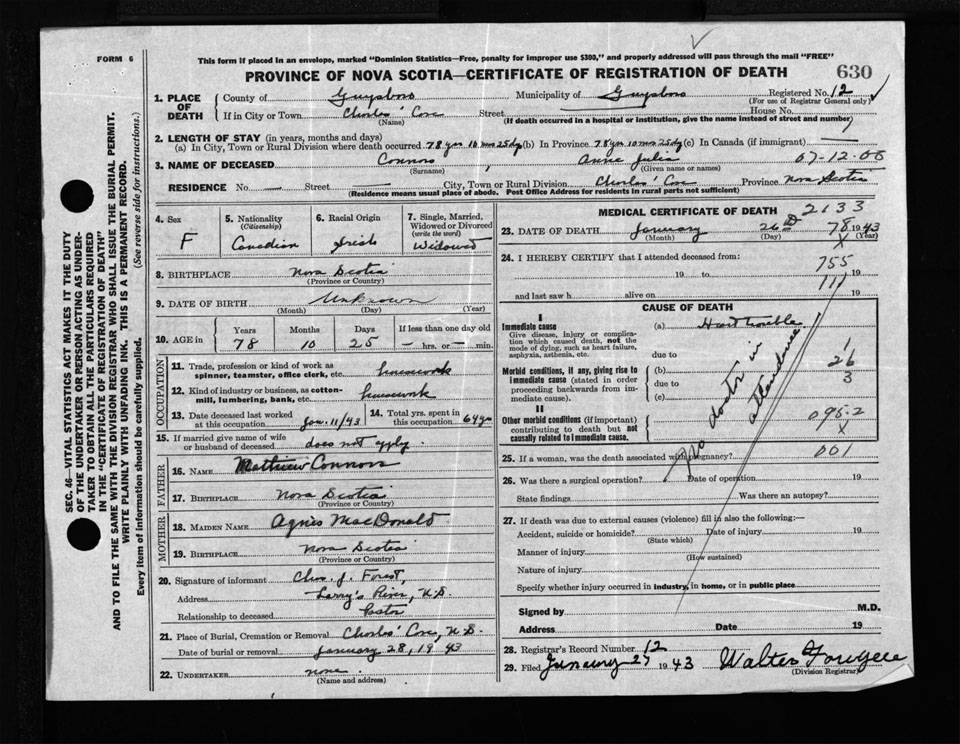 FORM 6
This form if placed in an envelope, marked "Dominion Statistics—Free, penalty for improper use $300," and properly addressed will pass through the mail "FREE"
PROVINCE OF NOVA SCOTIA—CERTIFICATE OF REGISTRATION OF DEATH 630
1. PLACE OF DEATH
County of Guysboro Municipality of Guysboro Registered No. 12
(For use of Registrar General only)
If in City or Town Charlos' Cove Street House No.
(Name) (If death occurred in a hospital or institution, give the name instead of street and number)
2. LENGTH OF STAY (in years, months and days)
(a) In City, Town or Rural Division where death occurred 78 yrs 10 mos 25 dy (b) In Province 78 yrs 10 mos 25 dy (c) In Canada (if immigrant)
3. NAME OF DECEASED Connors, Anne Julia 07-12-08
(Surname) (Given name or names)
RESIDENCE No. — Street — City, Town or Rural Division Charlos' Cove Province Nova Scotia
(Residence means usual place of abode. Post Office Address for residents in rural parts not sufficient)
4. Sex
F
5. Nationality
(Citizenship)
Canadian
6. Racial Origin
Irish
7. Single, Married, Widowed or Divorced
(write the word)
Widowed
8. BIRTHPLACE Nova Scotia
(Province or Country)
9. DATE OF BIRTH Unknown
(Month) (Day) (Year)
10. AGE in
Years Months Days If less than one day old
78 10 25 — hrs. or — min.
OCCUPATION
11. Trade, profession or kind of work as spinner, teamster, office clerk, etc. housework
12. Kind of industry or business, as cotton-mill, lumbering, bank, etc. housework
13. Date deceased last worked at this occupation Jan. 11/43
14. Total yrs. spent in this occupation 64 yrs
15. If married give name of wife or husband of deceased does not apply
FATHER
16. NAME Mathew Connors
17. BIRTHPLACE Nova Scotia
(Province or Country)
MOTHER
18. MAIDEN NAME Agnes MacDonald
19. BIRTHPLACE Nova Scotia
(Province or Country)
20. Signature of informant Chas. J. Forest,
Address Larry's River, N.S.
Relationship to deceased Pastor
21. Place of Burial, Cremation or Removal Charlos' Cove, N.S.
Date of burial or removal January 28, 1943
22. UNDERTAKER none
(Name and address)
MEDICAL CERTIFICATE OF DEATH 2133
23. DATE OF DEATH January 26 1943
(Month) (Day) (Year)
78
X
24. I HEREBY CERTIFY that I attended deceased from:
19 to 19
755
and last saw h alive on 19
111
CAUSE OF DEATH
I
Immediate cause
Give disease, injury or complication which caused death, not the mode of dying, such as heart failure, asphyxia, asthenia, etc.
(a) Heart trouble
due to
Morbid conditions, if any, giving rise to immediate cause (stated in order proceeding backwards from immediate cause).
(b)
due to
(c)
1
26
3
II
Other morbid conditions (if important) contributing to death but not causally related to immediate cause.
095.2
X
no doctor in attendance
25. If a woman, was the death associated with pregnancy? 001
26. Was there a surgical operation? Date of operation 19
State findings Was there an autopsy?
27. If death was due to external causes (violence) fill in also the following:—
Accident, suicide or homicide? Date of injury 19
(State which)
Manner of injury
(How sustained)
Nature of injury
Specify whether injury occurred in industry, in home, or in public place
Signed by M.D.
Address Date 19
28. Registrar's Record Number 12
29. Filed January 27 1943 Walter
(Division Registrar)
SEC. 46—VITAL STATISTICS ACT MAKES IT THE DUTY
OF THE UNDERTAKER OR PERSON ACTING AS UNDER-
TAKER TO OBTAIN ALL THE PARTICULARS REQUIRED
IN THE "CERTIFICATE OF REGISTRATION OF DEATH"
AND TO FILE THE SAME WITH THE DIVISION REGISTRAR WHO SHALL ISSUE THE BURIAL PERMIT.
WRITE PLAINLY WITH UNFADING INK. THIS IS A PERMANENT RECORD.
Every item of information should be carefully supplied. (See reverse side for instructions.)